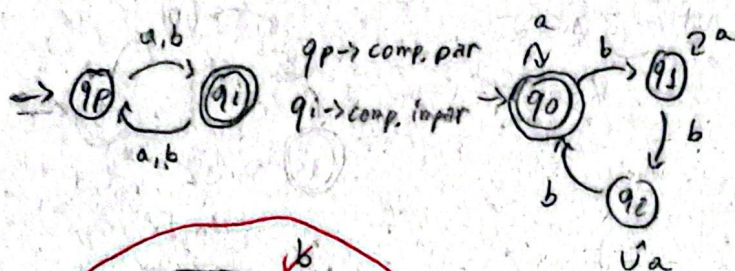 a,b
qp
qi
a,b
qp → comp. par
qi → comp. impar
a
q0
b
q1
a
b
q2
a
b
b